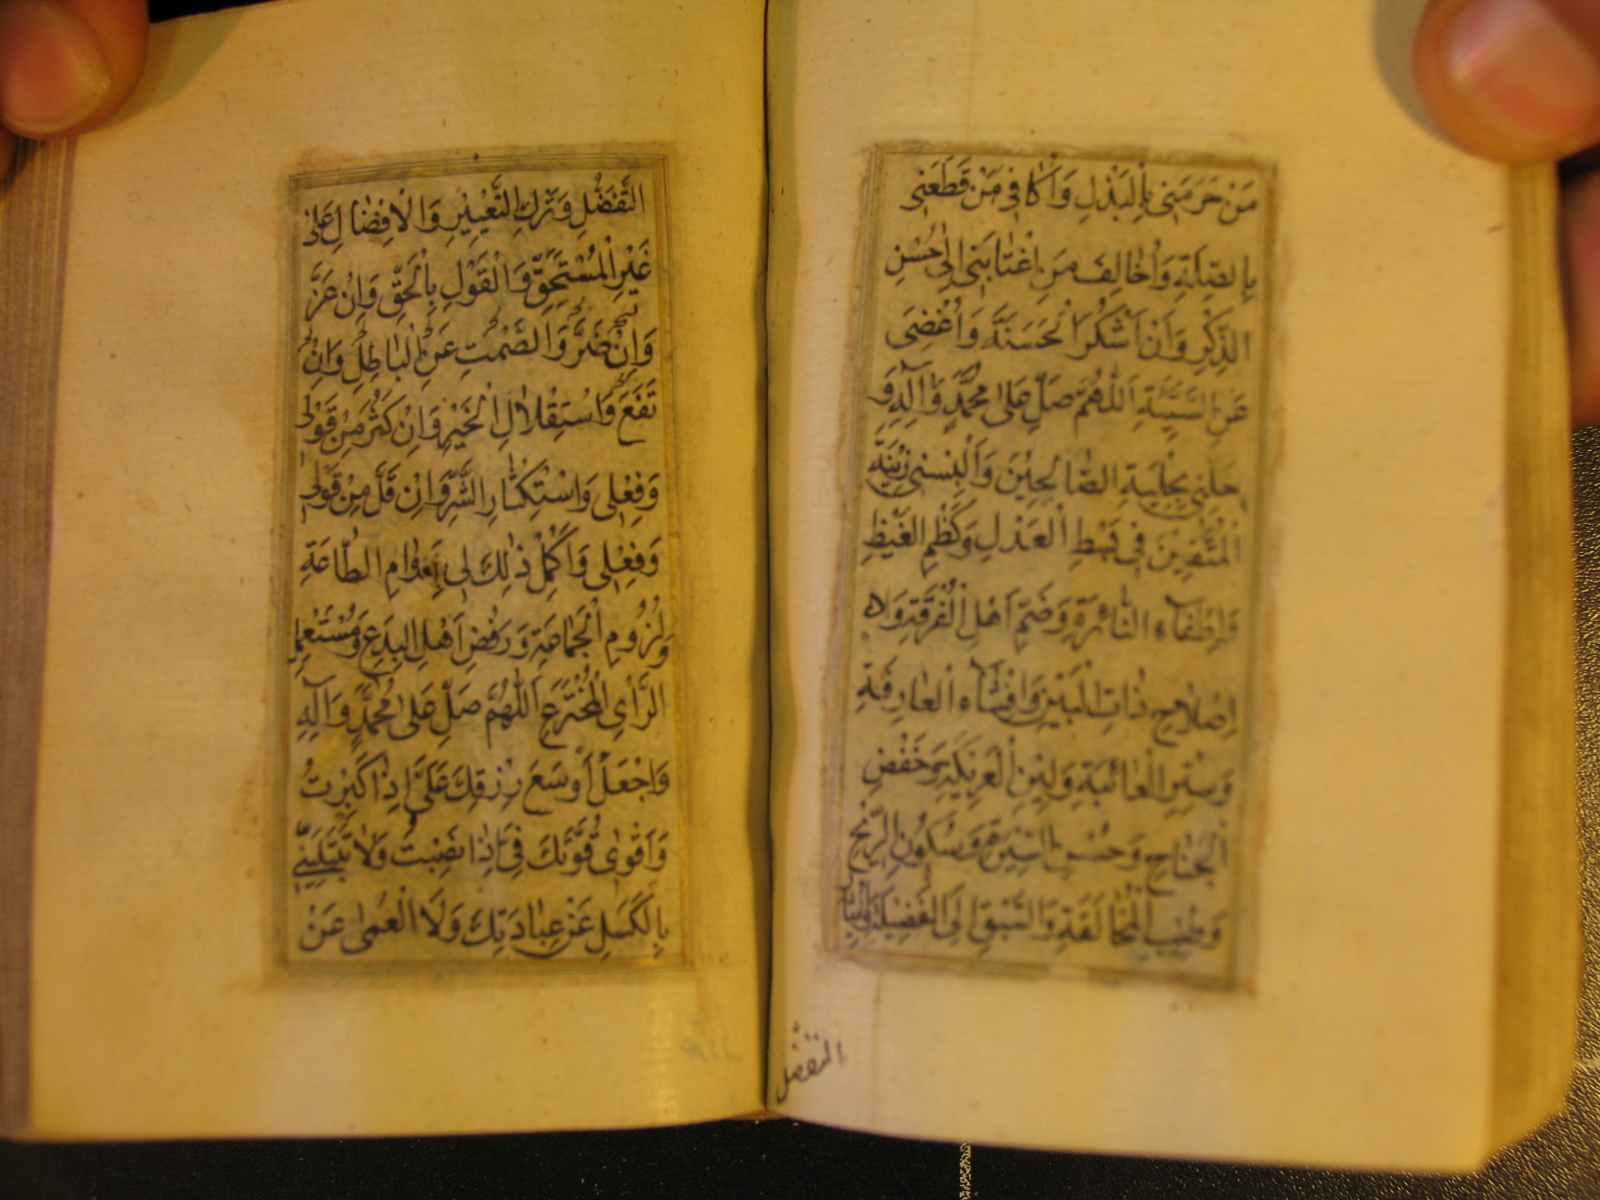 مَنْ حَرَمَنِي بِالْبَذْلِ وَأُكَافِيَ مَنْ قَطَعَنِي
بِالصِّلَةِ وَأُخَالِفَ مَنِ اغْتَابَنِي إِلَى حُسْنِ
الذِّكْرِ وَأَنْ أَشْكُرَ الْحَسَنَةَ وَأُغْضِيَ
عَنِ السَّيِّئَةِ اَللّٰهُمَّ صَلِّ عَلَى مُحَمَّدٍ وَآلِهِ وَ
حَلِّنِي بِحِلْيَةِ الصَّالِحِينَ وَأَلْبِسْنِي زِينَةَ
الْمُتَّقِينَ فِي بَسْطِ الْعَدْلِ وَكَظْمِ الْغَيْظِ
وَإِطْفَاءِ النَّائِرَةِ وَضَمِّ أَهْلِ الْفُرْقَةِ وَلَا
إِصْلَاحِ ذَاتِ الْبَيْنِ وَإِفْشَاءِ الْعَارِفَةِ
وَسَتْرِ الْعَائِبَةِ وَلِينِ الْعَرِيكَةِ وَخَفْضِ
الْجَنَاحِ وَحُسْنِ السِّيرَةِ وَسُكُونِ الرِّيحِ
وَطِيبِ الْمُخَالَقَةِ وَالسَّبْقِ إِلَى الْفَضِيلَةِ وَإِيثَا
التفضل
التَّفَضُّلِ وَتَرْكِ التَّعْيِيرِ وَالْإِفْضَالِ عَلَى
غَيْرِ الْمُسْتَحِقِّ وَالْقَوْلِ بِالْحَقِّ وَإِنْ عَزَّ
وَإِنْ ضَرَّ وَالصَّمْتِ عَنِ الْبَاطِلِ وَإِنْ
نَفَعَ وَاسْتِقْلَالِ الْخَيْرِ وَإِنْ كَثُرَ مِنْ قَوْلِي
وَفِعْلِي وَاسْتِكْثَارِ الشَّرِّ وَإِنْ قَلَّ مِنْ قَوْلِي
وَفِعْلِي وَأَكْمِلْ ذَلِكَ لِي بِدَوَامِ الطَّاعَةِ
وَلُزُومِ الْجَمَاعَةِ وَرَفْضِ أَهْلِ الْبِدَعِ وَمُسْتَعْمِلِ
الرَّأْيِ الْمُخْتَرَعِ اَللّٰهُمَّ صَلِّ عَلَى مُحَمَّدٍ وَآلِهِ
وَاجْعَلْ أَوْسَعَ رِزْقِكَ عَلَيَّ إِذَا كَبِرْتُ
وَأَقْوَى قُوَّتِكَ فِيَّ إِذَا نَصِبْتُ وَلَا تَبْتَلِيَنِّي
بِالْكَسَلِ عَنْ عِبَادَتِكَ وَلَا الْعَمَى عَنْ